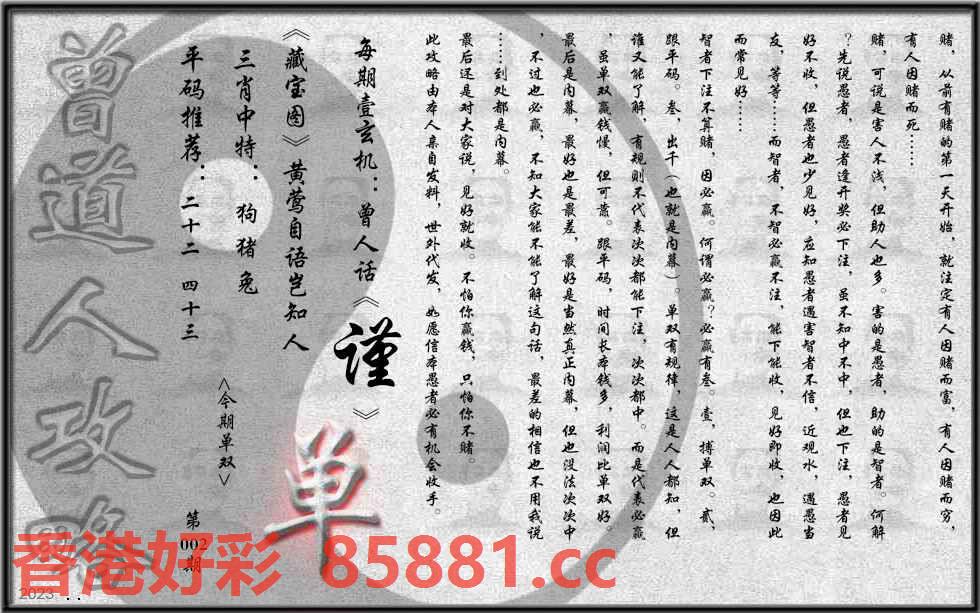 赌，从前有赌的第一天开始，就注定有人因赌而富，有人因赌而穷，
有人因赌而死……
赌，可说是害人不浅，但助人也多。害的是愚者，助的是智者。何解
？先说愚者，愚者逢开奖必下注，虽不知中不中，但也下注，愚者见
好不收，但愚者也少见好，应知愚者遇害智者不信，近观水，遇愚当
友，等等……而智者，不智必赢不注，能下能收，见好即收，也因此
而常见好……
智者下注不算赌，因必赢。何谓必赢？必赢有叁。壹，搏单双。贰，
跟平码。叁，出千（也就是内幕）。单双有规律，这是人人都知，但
谁又能了解，有规则不代表次次都能下注，次次都中。而是代表必赢
，虽单双赢钱慢，但可靠。跟平码，时间长本钱多，利润比单双好。
最后是内幕，最好也是最差，最好是当然真正内幕，但也没法次次中
，不过也必赢，不知大家能不能了解这句话，最差的相信也不用我说
……到处都是内幕。
最后还是对大家说，见好就收。不怕你赢钱，只怕你不赌。
此攻略由本人亲自发料，世外代发，如愿信本愚者必有机会收手。
每期壹玄机：曾人话《谨》
《藏宝图》黄莺自语岂知人
三肖中特：狗猪兔
平码推荐：二十二 四十三
<今期单双>
单
第
002
期
曾道人攻略
香港好彩 85881.cc
2023